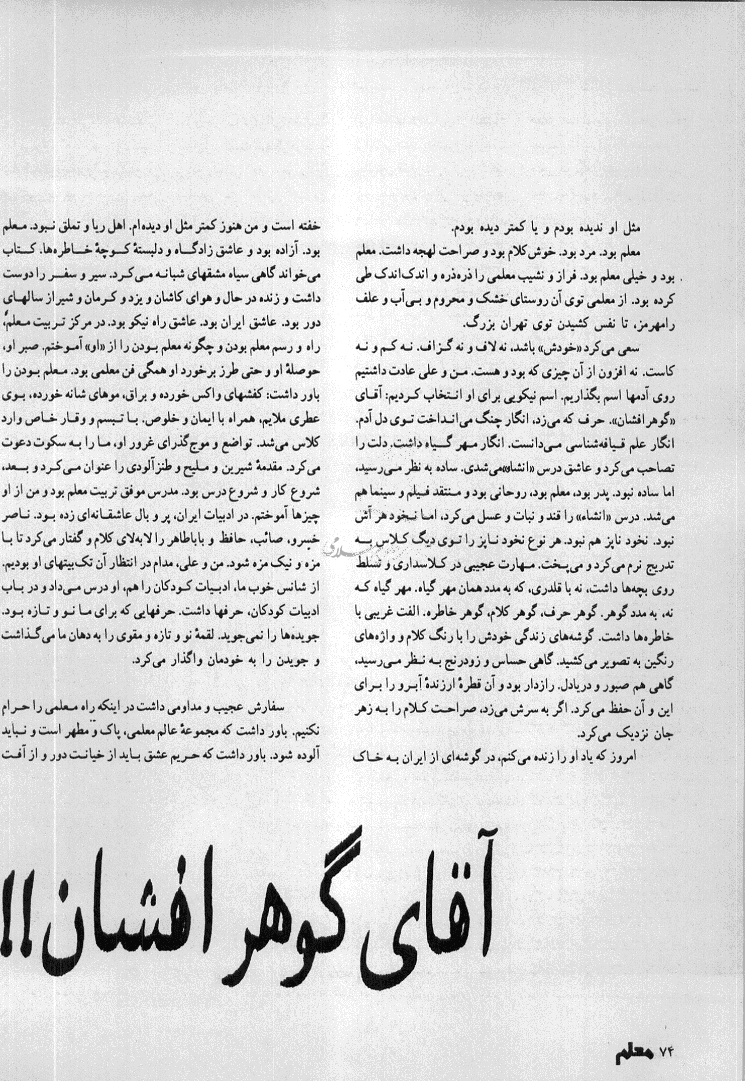 مثل او ندیده بودم و یا کمتر دیده بودم.
معلم بود. مرد بود. خوش‌کلام بود و صراحت لهجه داشت. معلم
بود و خیلی معلم بود. فراز و نشیب معلمی را ذره‌ذره و اندک‌اندک طی
کرده بود. از معلمی توی آن روستای خشک و محروم و بی‌آب و علف
رامهرمز، تا نفس کشیدن توی تهران بزرگ.
سعی می‌کرد «خودش» باشد، نه لاف و نه گزاف. نه کم و نه
کاست. نه افزون از آن چیزی که بود و هست. من و علی عادت داشتیم
روی آدمها اسم بگذاریم. اسم نیکویی برای او انتخاب کردیم: آقای
«گوهرافشان». حرف که می‌زد، انگار چنگ می‌انداخت توی دل آدم.
انگار علم قیافه‌شناسی می‌دانست. انگار مهر گیاه داشت. دلت را
تصاحب می‌کرد و عاشق درس «انشاء» می‌شدی. ساده به نظر می‌رسید،
اما ساده نبود. پدر بود، معلم بود، روحانی بود و منتقد فیلم و سینما هم
می‌شد. درس «انشاء» را قند و نبات و عسل می‌کرد، اما نخود هر آش
نبود. نخود ناپز هم نبود. هر نوع نخود ناپز را توی دیگ کلاس به
تدریج نرم می‌کرد و می‌پخت. مهارت عجیبی در کلاسداری و تسلط
روی بچه‌ها داشت، نه با قلدری، که به مدد همان مهر گیاه. مهر گیاه که
نه، به مدد گوهر. گوهر حرف، گوهر کلام، گوهر خاطره. الفت غریبی با
خاطره‌ها داشت. گوشه‌های زندگی خودش را با رنگ کلام و واژه‌های
رنگین به تصویر می‌کشید. گاهی حساس و زودرنج به نظر می‌رسید،
گاهی هم صبور و دریادل. رازدار بود و آن قطرهٔ ارزندهٔ آبرو را برای
این و آن حفظ می‌کرد. اگر به سرش می‌زد، صراحت کلام را به زهر
جان نزدیک می‌کرد.
امروز که یاد او را زنده می‌کنم، در گوشه‌ای از ایران به خاک
خفته است و من هنوز کمتر مثل او دیده‌ام. اهل ریا و تملق نبود. معلم
بود. آزاده بود و عاشق زادگاه و دلبستهٔ کوچهٔ خاطره‌ها. کتاب
می‌خواند گاهی سیاه مشقهای شبانه می‌کرد. سیر و سفر را دوست
داشت و زنده در حال و هوای کاشان و یزد و کرمان و شیراز سالهای
دور بود. عاشق ایران بود. عاشق راه نیکو بود. در مرکز تربیت معلم،
راه و رسم معلم بودن و چگونه معلم بودن را از «او» آموختم. صبر او،
حوصلهٔ او و حتی طرز برخورد او همگی فن معلمی بود. معلم بودن را
باور داشت: کفشهای واکس خورده و براق، موهای شانه خورده، بوی
عطری ملایم، همراه با ایمان و خلوص. با تبسم و وقار خاص وارد
کلاس می‌شد. تواضع و موج‌گذرای غرور او، ما را به سکوت دعوت
می‌کرد. مقدمهٔ شیرین و ملیح و طنزآلودی را عنوان می‌کرد و بعد،
شروع کار و شروع درس بود. مدرس موفق تربیت معلم بود و من از او
چیزها آموختم. در ادبیات ایران، پر و بال عاشقانه‌ای زده بود. ناصر
خسرو، صائب، حافظ و باباطاهر را لابه‌لای کلام و گفتار می‌کرد تا با
مزه و نیک مزه شود. من و علی، مدام در انتظار آن تک‌بیتهای او بودیم.
از شانس خوب ما، ادبیات کودکان را هم، او درس می‌داد و در باب
ادبیات کودکان، حرفها داشت. حرفهایی که برای ما نو و تازه بود.
جویده‌ها را نمی‌جوید. لقمهٔ نو و تازه و مقوی را به دهان ما می‌گذاشت
و جویدن را به خودمان واگذار می‌کرد.
سفارش عجیب و مداومی داشت در اینکه راه معلمی را حرام
نکنیم. باور داشت که مجموعهٔ عالم معلمی، پاک و مطهر است و نباید
آلوده شود. باور داشت که حریم عشق باید از خیانت دور و از آفت
آقای گوهر افشان!!
۷۴ معلم